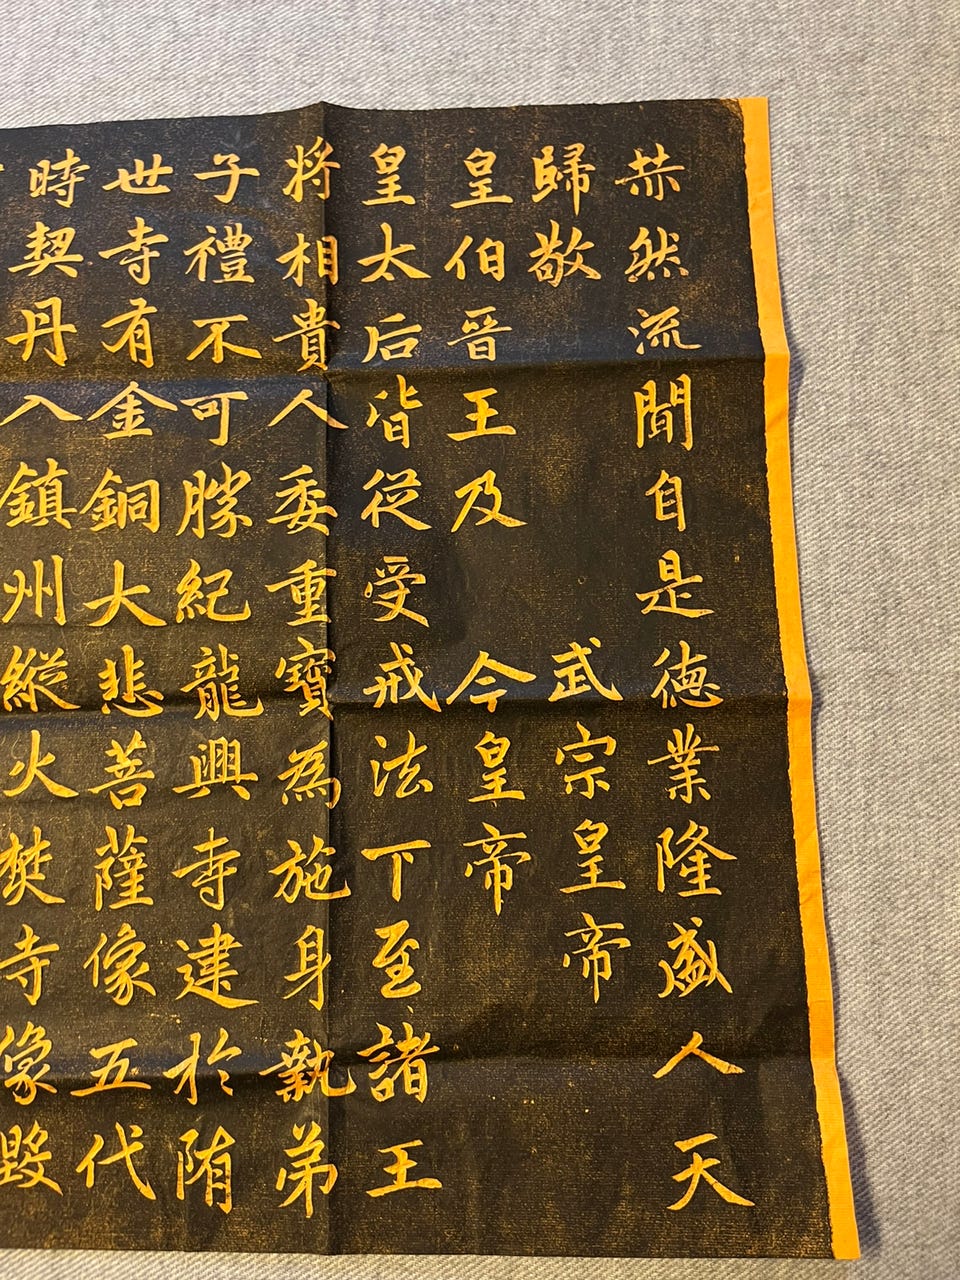 赫然流聞自是德業隆盛人天
歸敬　武宗皇帝
皇伯晉王及　今皇帝
皇太后皆從受戒法下至諸王
將相貴人委重寶為施身執弟
子禮不可勝紀龍興寺建於隋
世寺有金銅大悲菩薩像五代
時契丹入鎮州縱火焚寺像毀